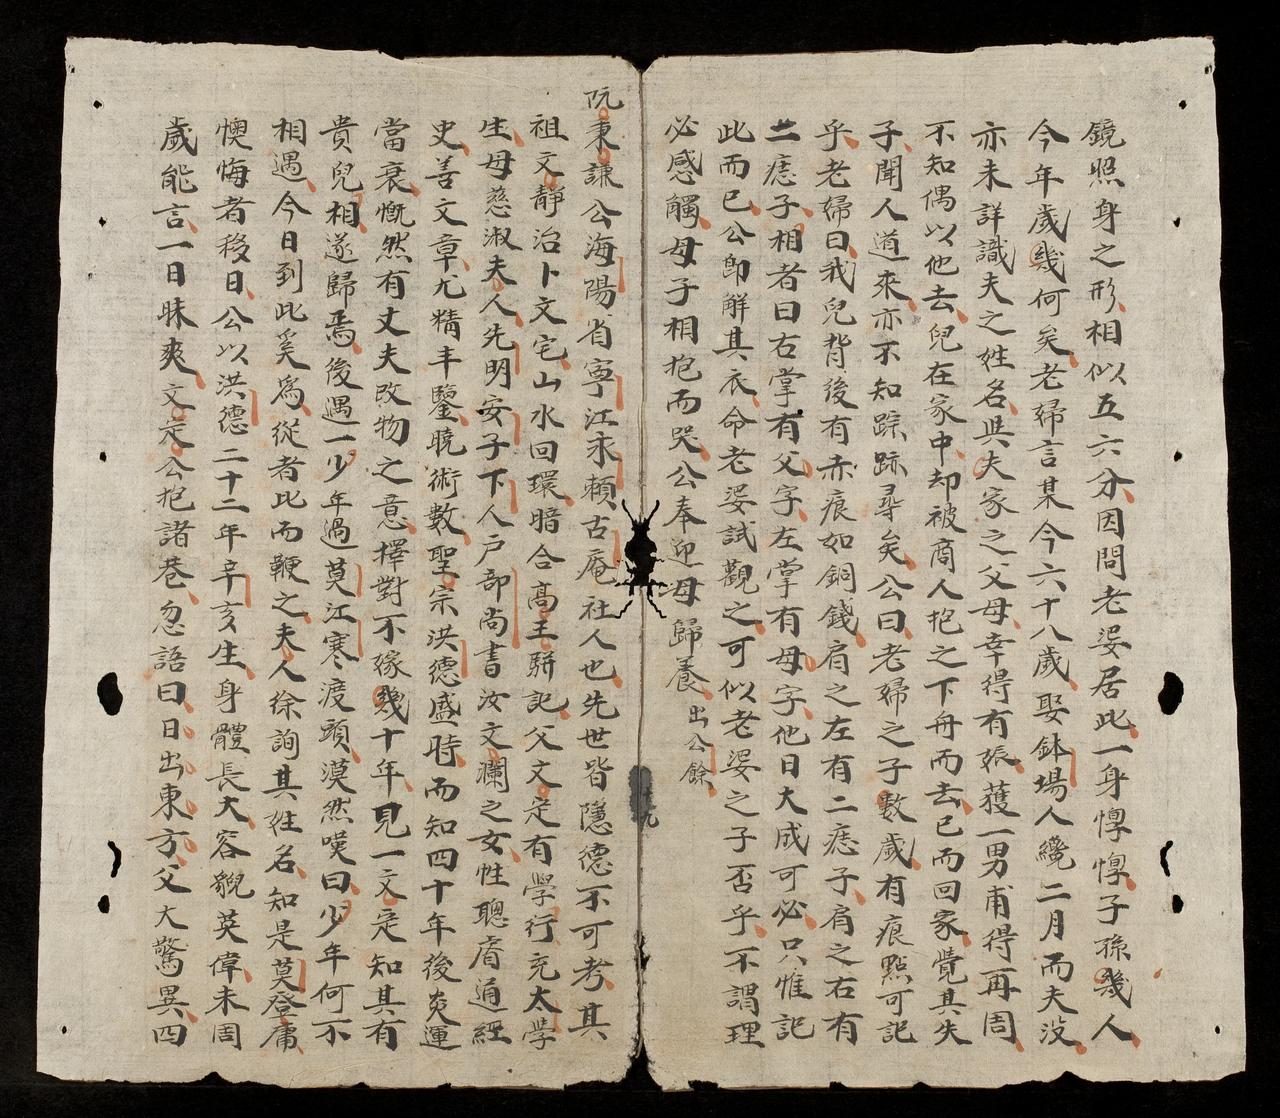 鏡照身之形相似五六分因問老婆居此一身惸惸子孫幾人
今年歲幾何矣老婦言某今六十八歲娶鉢場人纔二月而夫没
亦未詳識夫之姓名與夫家之父母幸得有娠獲一男甫得再周
不知偶以他去兒在家中却被商人抱之下舟而去已而回家覺其失
子聞人道來亦不知踪跡尋矣公曰老婦之子數歲有痕點可記
乎老婦曰我兒背後有赤痕如銅錢肩之左有二痣子肩之右有
二痣子相者曰右掌有父字左掌有母字他日大成可必只惟記
此而已公卽解其衣命老婆試觀之可似老婆之子否乎不謂理
必感觸母子相抱而哭公奉迎母歸養出公餘
阮秉謙公海陽省寧江永賴古庵社人也先世皆隱德不可考其
祖文靜治卜文宅山水回環暗合高王駢記父文定有學行充太學
生母慈淑夫人先明安子下人戶部尚書汝文瀾之女性聰睿通經
史善文章尤精丰鑒曉術數聖宗洪德盛時而知四十年後炎運
當衰慨然有丈夫改物之意擇對不嫁幾十年見一文定知其有
貴兒相遂歸焉後遇一少年過莫江寒渡頭漠然嘆曰少年何不
相遇今日到此奚爲從者叱而鞭之夫人徐詢其姓名知是莫登庸
懊悔者移日公以洪德二十二年辛亥生身體長大容貌英偉未周
歲能言一日昧爽文定公抱諸巷忽語曰日出東方父大驚異四